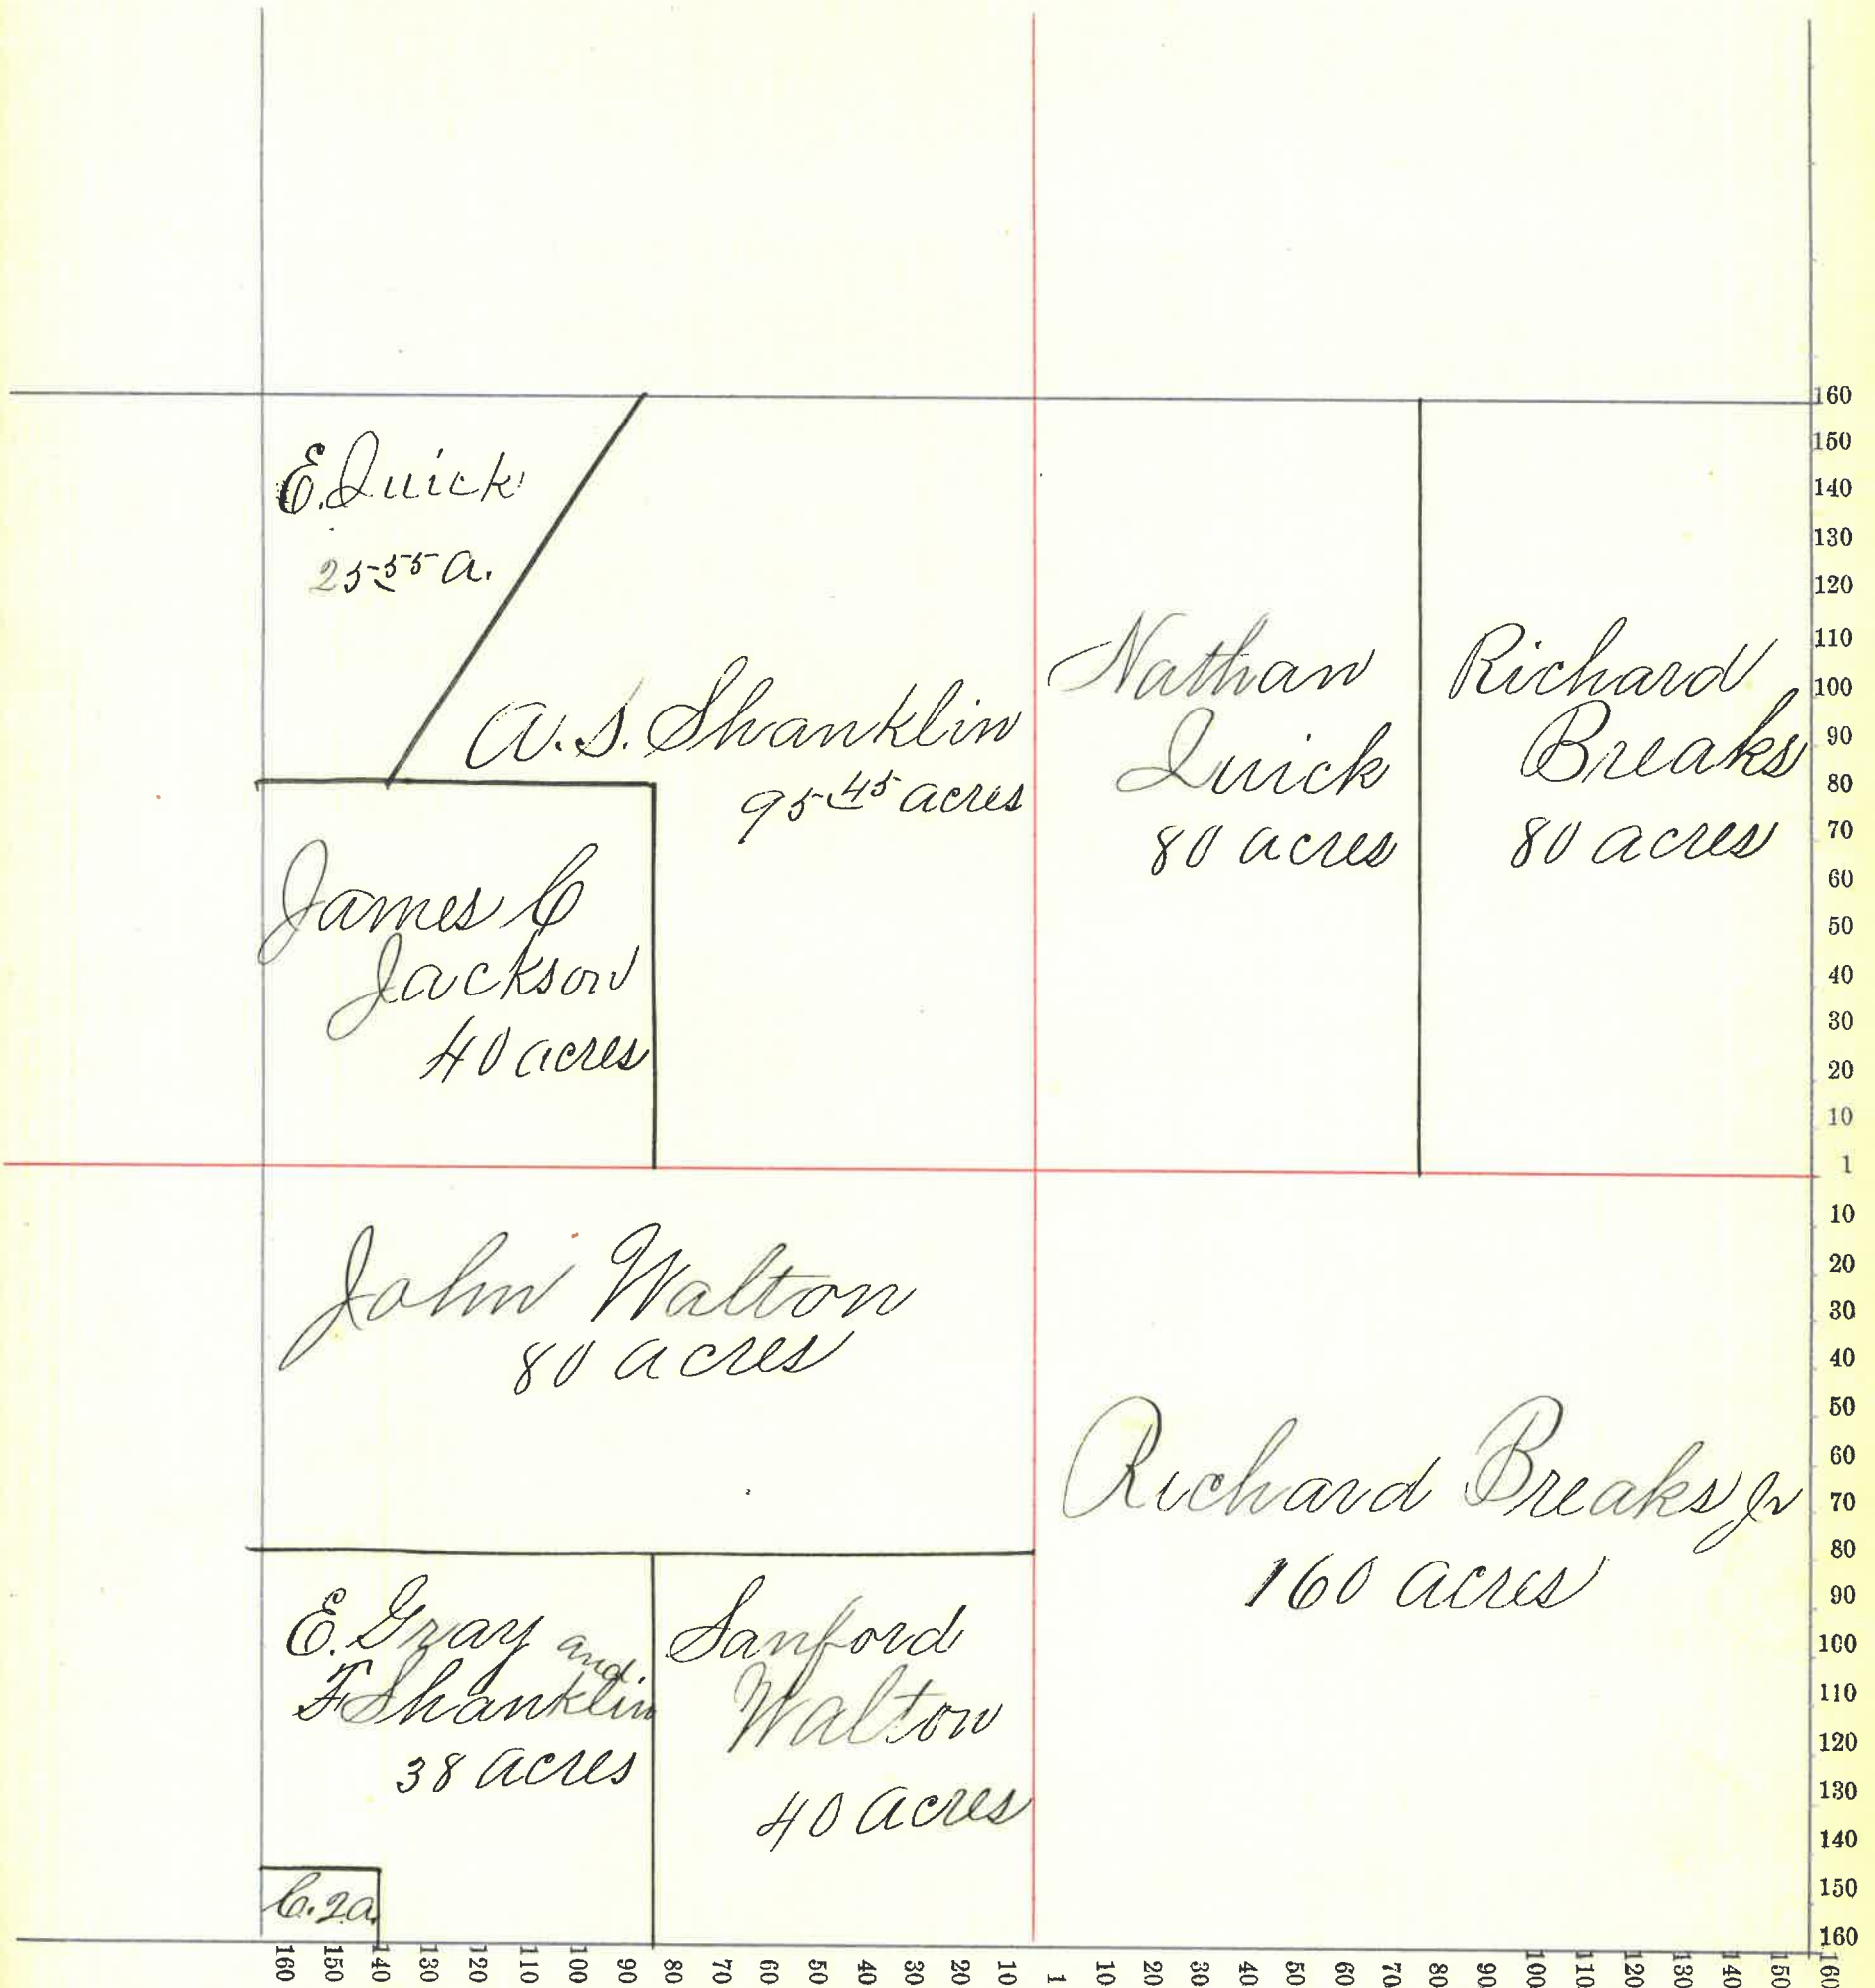 E. Quick
25 55 a.
A. S. Shanklin
95 45 acres
Nathan
Quick
80 acres
Richard
Breaks
80 acres
James C
Jackson
40 acres
John Walton
80 acres
Richard Breaks Jr
160 acres
E. Gray and
F Shanklin
38 acres
Sanford
Walton
40 acres
C. 2a.
160
150
140
130
120
110
100
90
80
70
60
50
40
30
20
10
1
10
20
30
40
50
60
70
80
90
100
110
120
130
140
150
160
160 150 140 130 120 110 100 90 80 70 60 50 40 30 20 10 1 10 20 30 40 50 60 70 80 90 100 110 120 130 140 150 160